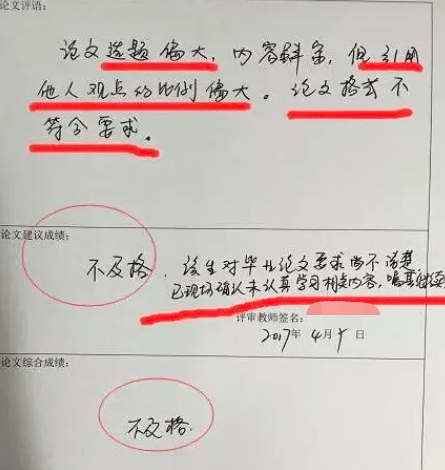 论文评语：
论文选题偏大，内容丰富，但引用
他人观点的比例偏大。论文格式不
符合要求。
论文建议成绩：
不及格，该生对毕业论文要求尚不清楚
已现场确认未认真学习相关内容，嘱其继续
评审教师签名：
2017年 4月 日
论文综合成绩：
不及格.